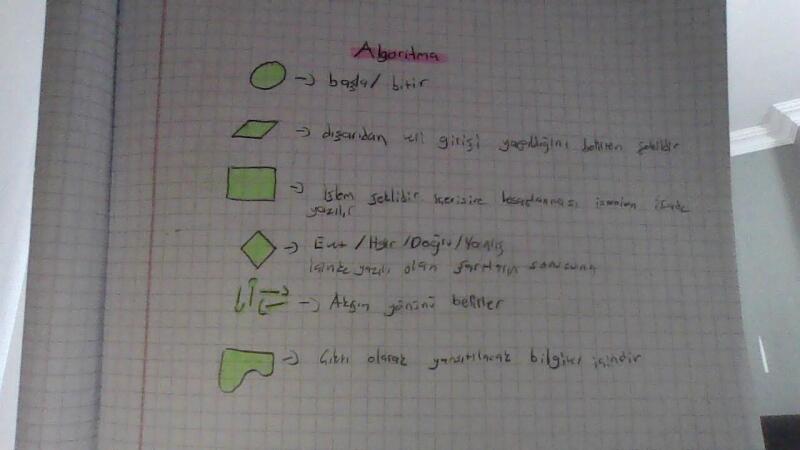 Algoritma
başla / bitir
dışarıdan veri girişi yapıldığını belirten şekildir
işlem şeklidir içerisine istenilen ifade
yazılır
Evet / Hayır / Doğru / Yanlış
içinde yazılı olan şartların sonucuna
Akışın yönünü belirler
Çıktı olarak yansıtılacak bilgiler içindir